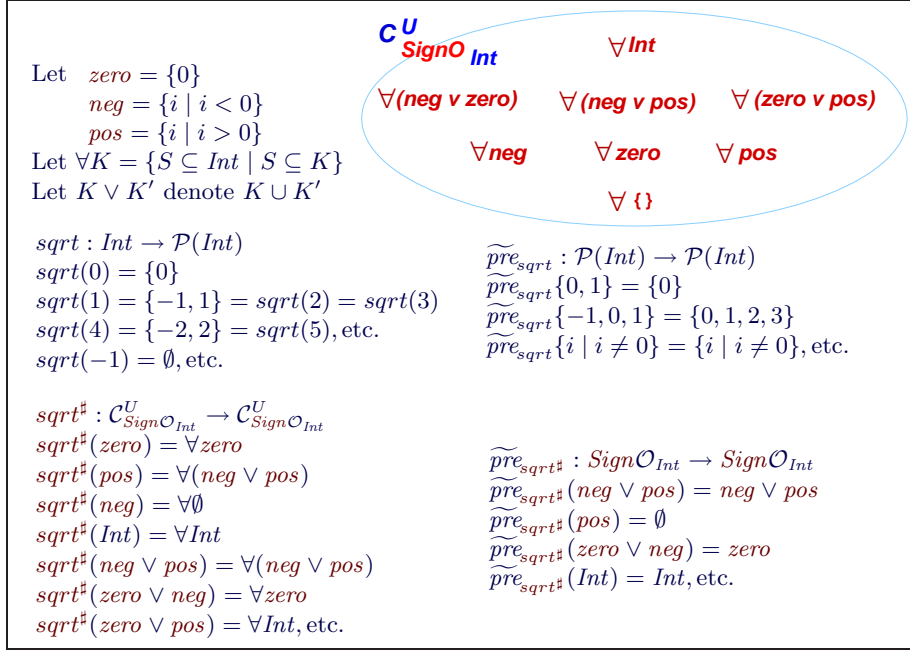 C^U_{SignO_{Int}}
∀Int
∀(neg v zero) ∀(neg v pos) ∀(zero v pos)
∀neg ∀zero ∀pos
∀{}
Let zero = {0}
neg = {i | i < 0}
pos = {i | i > 0}
Let ∀K = {S ⊆ Int | S ⊆ K}
Let K ∨ K′ denote K ∪ K′
sqrt : Int → 𝒫(Int)
sqrt(0) = {0}
sqrt(1) = {−1, 1} = sqrt(2) = sqrt(3)
sqrt(4) = {−2, 2} = sqrt(5), etc.
sqrt(−1) = ∅, etc.
p͠re_{sqrt} : 𝒫(Int) → 𝒫(Int)
p͠re_{sqrt}{0, 1} = {0}
p͠re_{sqrt}{−1, 0, 1} = {0, 1, 2, 3}
p͠re_{sqrt}{i | i ≠ 0} = {i | i ≠ 0}, etc.
sqrt^♯ : 𝒞^U_{Sign𝒪_{Int}} → 𝒞^U_{Sign𝒪_{Int}}
sqrt^♯(zero) = ∀zero
sqrt^♯(pos) = ∀(neg ∨ pos)
sqrt^♯(neg) = ∀∅
sqrt^♯(Int) = ∀Int
sqrt^♯(neg ∨ pos) = ∀(neg ∨ pos)
sqrt^♯(zero ∨ neg) = ∀zero
sqrt^♯(zero ∨ pos) = ∀Int, etc.
p͠re_{sqrt^♯} : Sign𝒪_{Int} → Sign𝒪_{Int}
p͠re_{sqrt^♯}(neg ∨ pos) = neg ∨ pos
p͠re_{sqrt^♯}(pos) = ∅
p͠re_{sqrt^♯}(zero ∨ neg) = zero
p͠re_{sqrt^♯}(Int) = Int, etc.